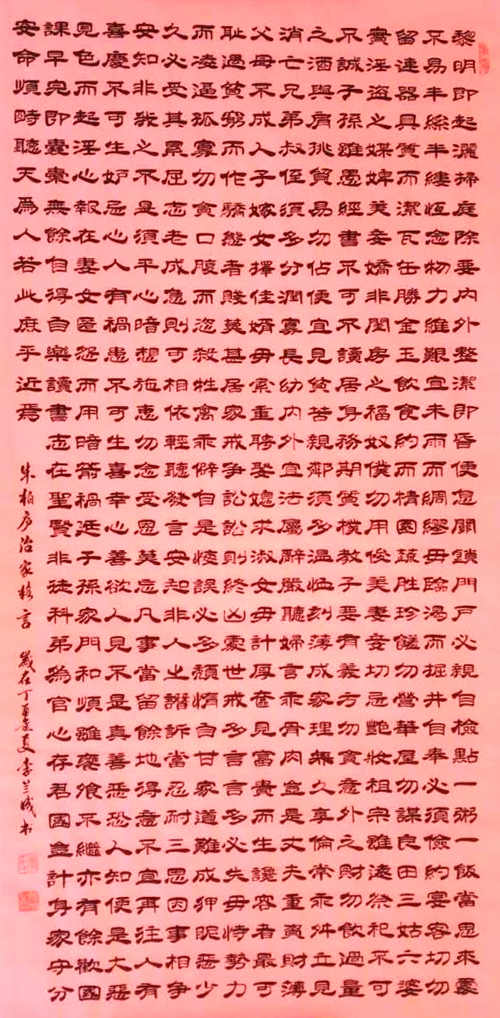 黎明即起灑掃庭除要內外整潔即昏便息關鎖門戶必親自檢點一粥一飯當思來處
不易半絲半縷恆念物力維艱宜未雨而綢繆毋臨渴而掘井自奉必須儉約宴客切勿
留連器具質而潔瓦缶勝金玉飲食約而精園蔬勝珍饈勿營華屋勿謀良田三姑六婆
實淫盜之媒婢美妾嬌非閨房之福奴僕勿用俊美妻妾切忌艷妝祖宗雖遠祭祀不可
不誠子孫雖愚經書不可不讀居身務期質樸教子要有義方勿貪意外之財勿飲過量
之酒與肩挑貿易勿佔便宜見貧苦親鄰須多溫恤刻薄成家理無久享倫常乖舛立見
消亡兄弟叔侄須多分潤寡長幼內外宜法屬辭嚴聽婦言乖骨肉豈是丈夫重資財薄
父母不成人子嫁女擇佳婿毋索重聘娶媳求淑女毋計厚奩見富貴而生讒容者最可
恥遇貧窮而作驕態者賤莫甚居家戒爭訟訟則終凶處世戒多言言多必失毋恃勢力
而凌逼孤寡勿貪口腹而恣殺牲禽乖僻自是悔誤必多頹惰自甘家道難成狎昵惡少
久必受其累屈志老成急則可相依輕聽發言安知非人之譖訴當忍耐三思因事相爭
安知非我之不是須平心暗想施惠勿念受恩莫忘凡事當留餘地得意不宜再往人有
喜慶不可生妒忌心人有禍患不可生喜幸心善欲人見不是真善惡恐人知便是大惡
見色而起淫心報在妻女匿怨而用暗箭禍延子孫家門和順雖饔飧不繼亦有餘歡國
課早完即囊橐無餘自得自樂讀書志在聖賢非徒科弟為官心存君國豈計身家守分
安命順時聽天為人若此庶乎近焉
朱柏廬治家格言 歲在丁夏李兰成书